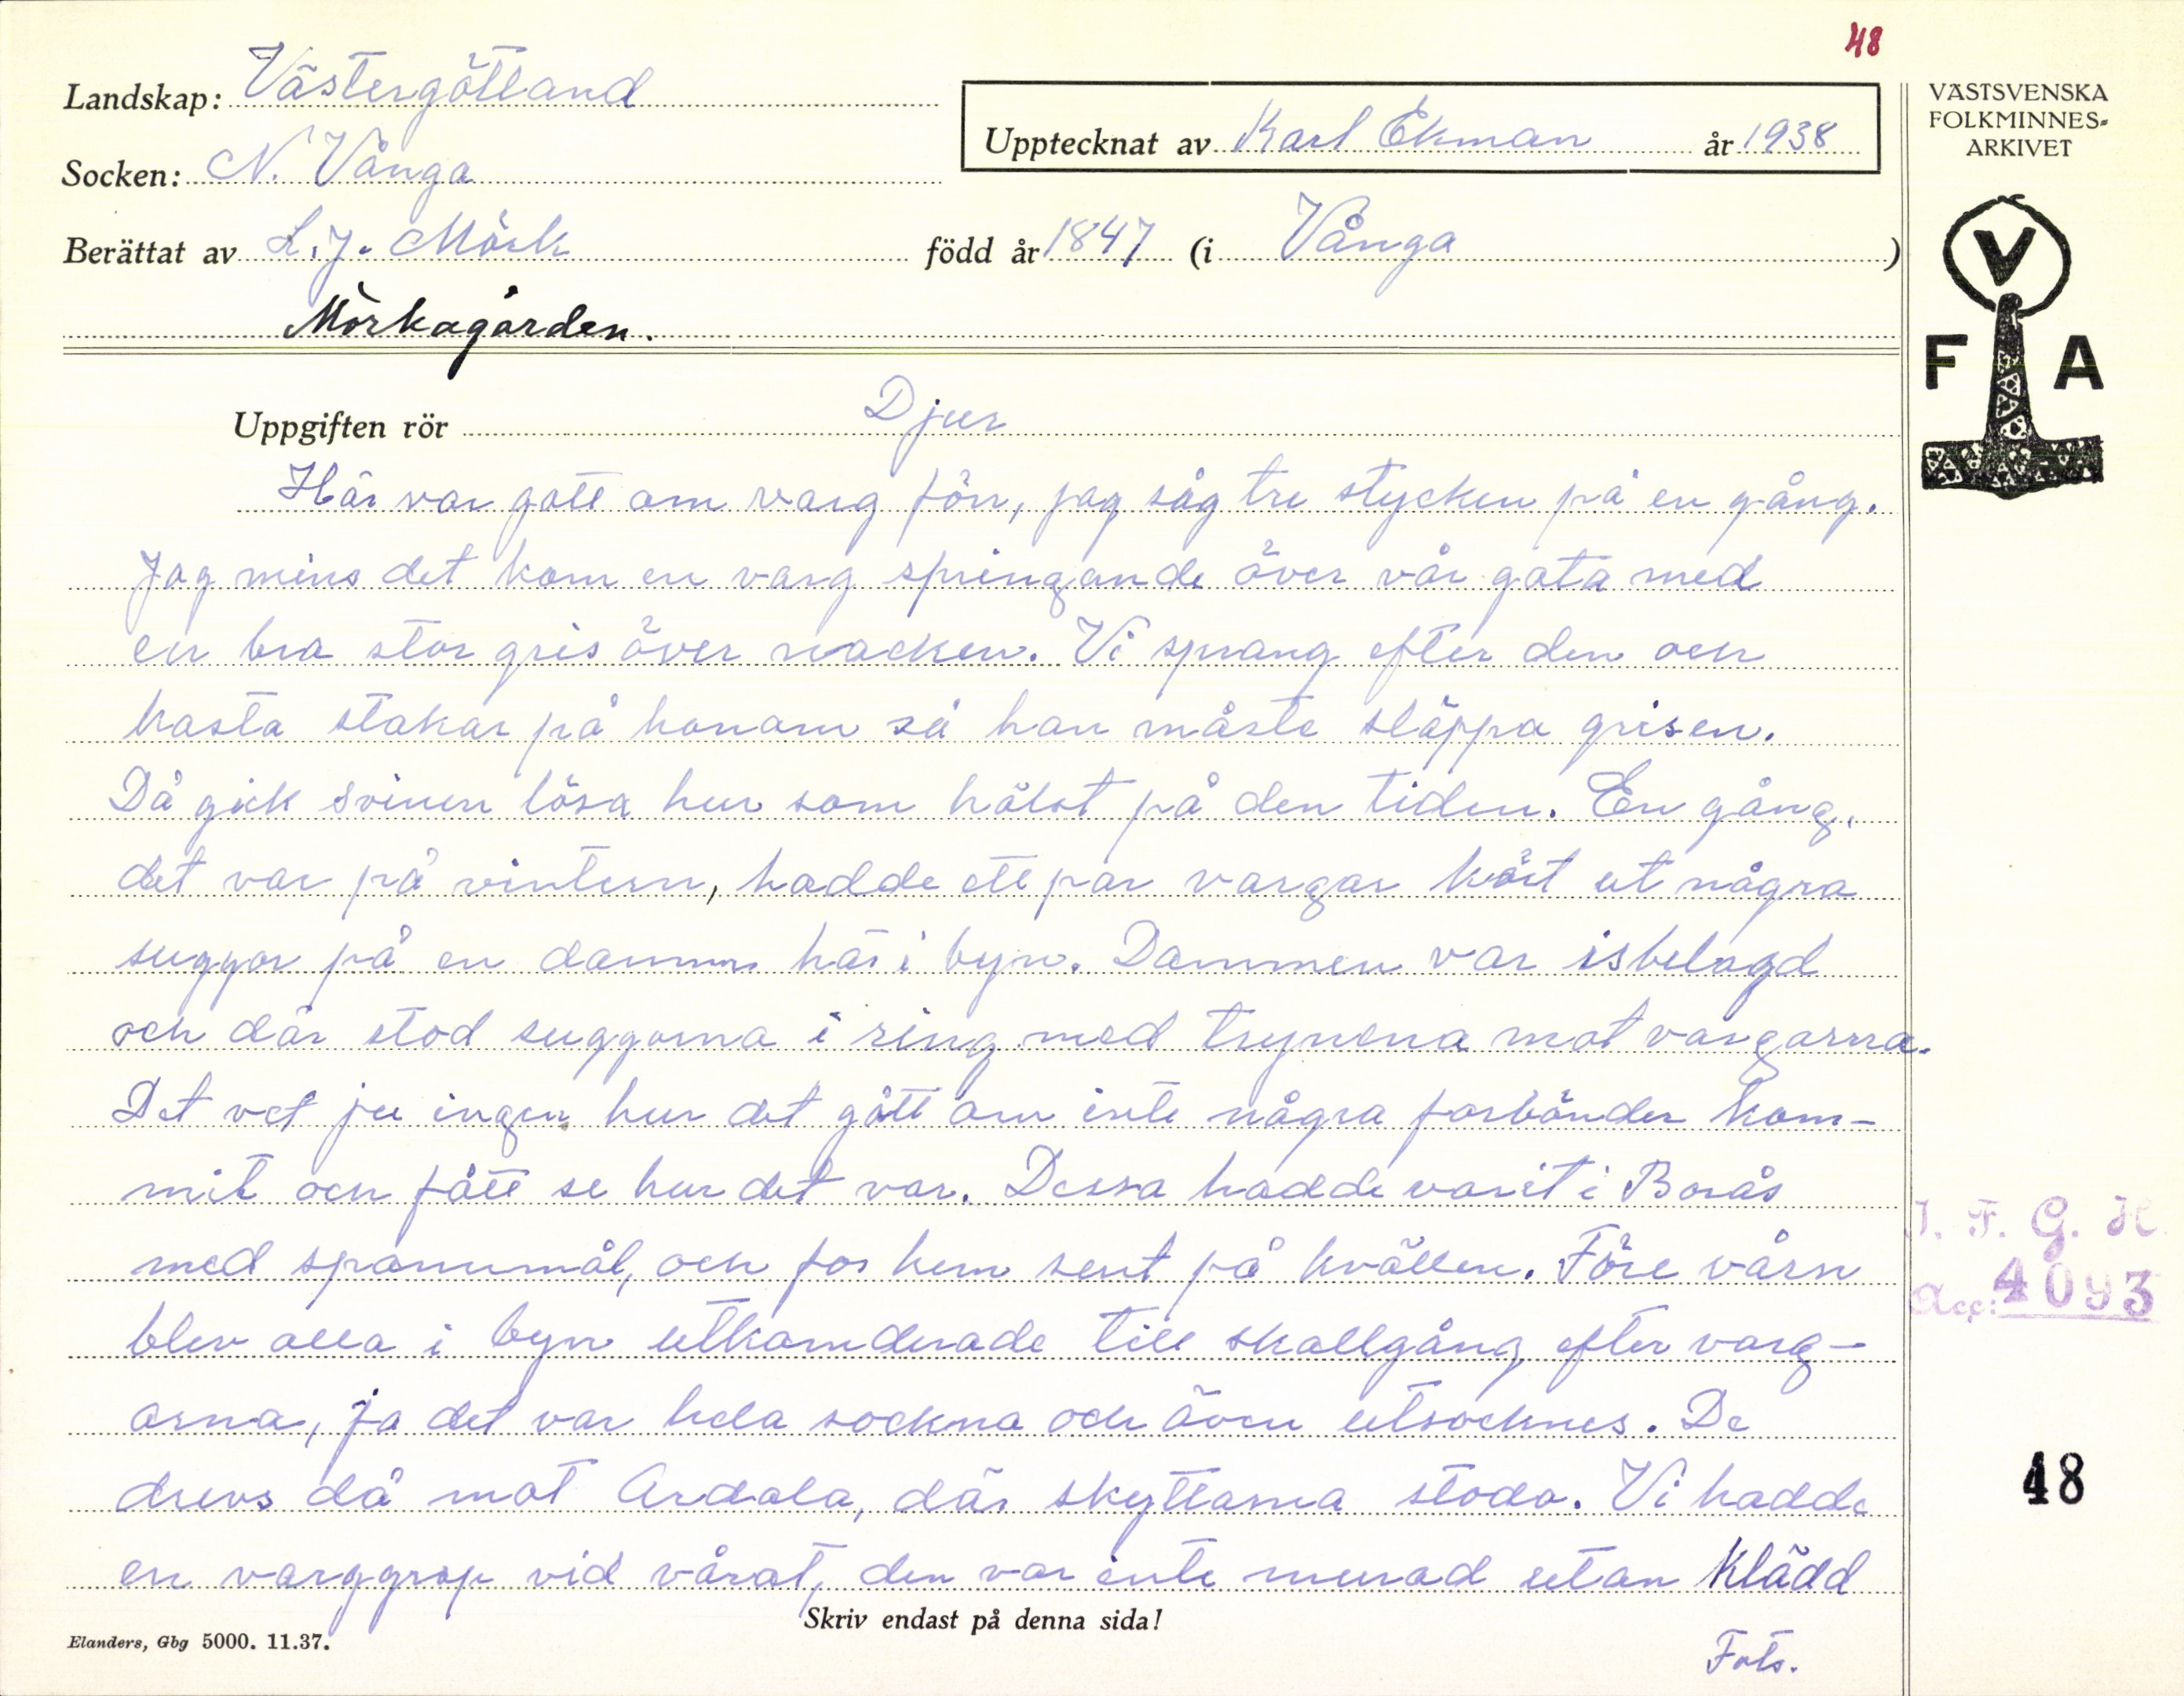 48
Landskap: Västergötland
Socken: N. Vånga
Berättat av L.J. Mörk född år 1847 (i Vånga)
Mörkagården.
Upptecknat av Karl Ekman år 1938
VÄSTSVENSKA
FOLKMINNES-
ARKIVET
V
F A
Uppgiften rör Djur
Här var gott om varg förr, jag såg tre stycken på en gång.
Jag mins det kom en varg springande över vår gata med
en bra stor gris över nacken. Vi sprang efter den och
kasta stakar på honom så han måste släppa grisen.
Då gick svinen lösa hur som hälst på den tiden. En gång,
det var på vintern, hadde ett par vargar kört ut några
suggor på en damm här i byn. Dammen var isbelagd
och där stod suggorna i ring med trynena mot vargarna.
Det vet ju ingen hur det gått om inte några forbönder kom-
mit och fått se hur det var. Dessa hadde varit i Borås
med spannmål, och for hem sent på kvällen. Före vårn
blev alla i byn utkomderade till skallgång efter varg-
arna, ja det var hela sockna och även utsocknes. De
drevs då mot Ardala, där skyttarna stodo. Vi hadde
en varggrop vid vårat, den var inte murad utan klädd
Skriv endast på denna sida!
Elanders, Gbg 5000. 11.37.
Forts.
I. F. G. H.
Acc: 4093
48